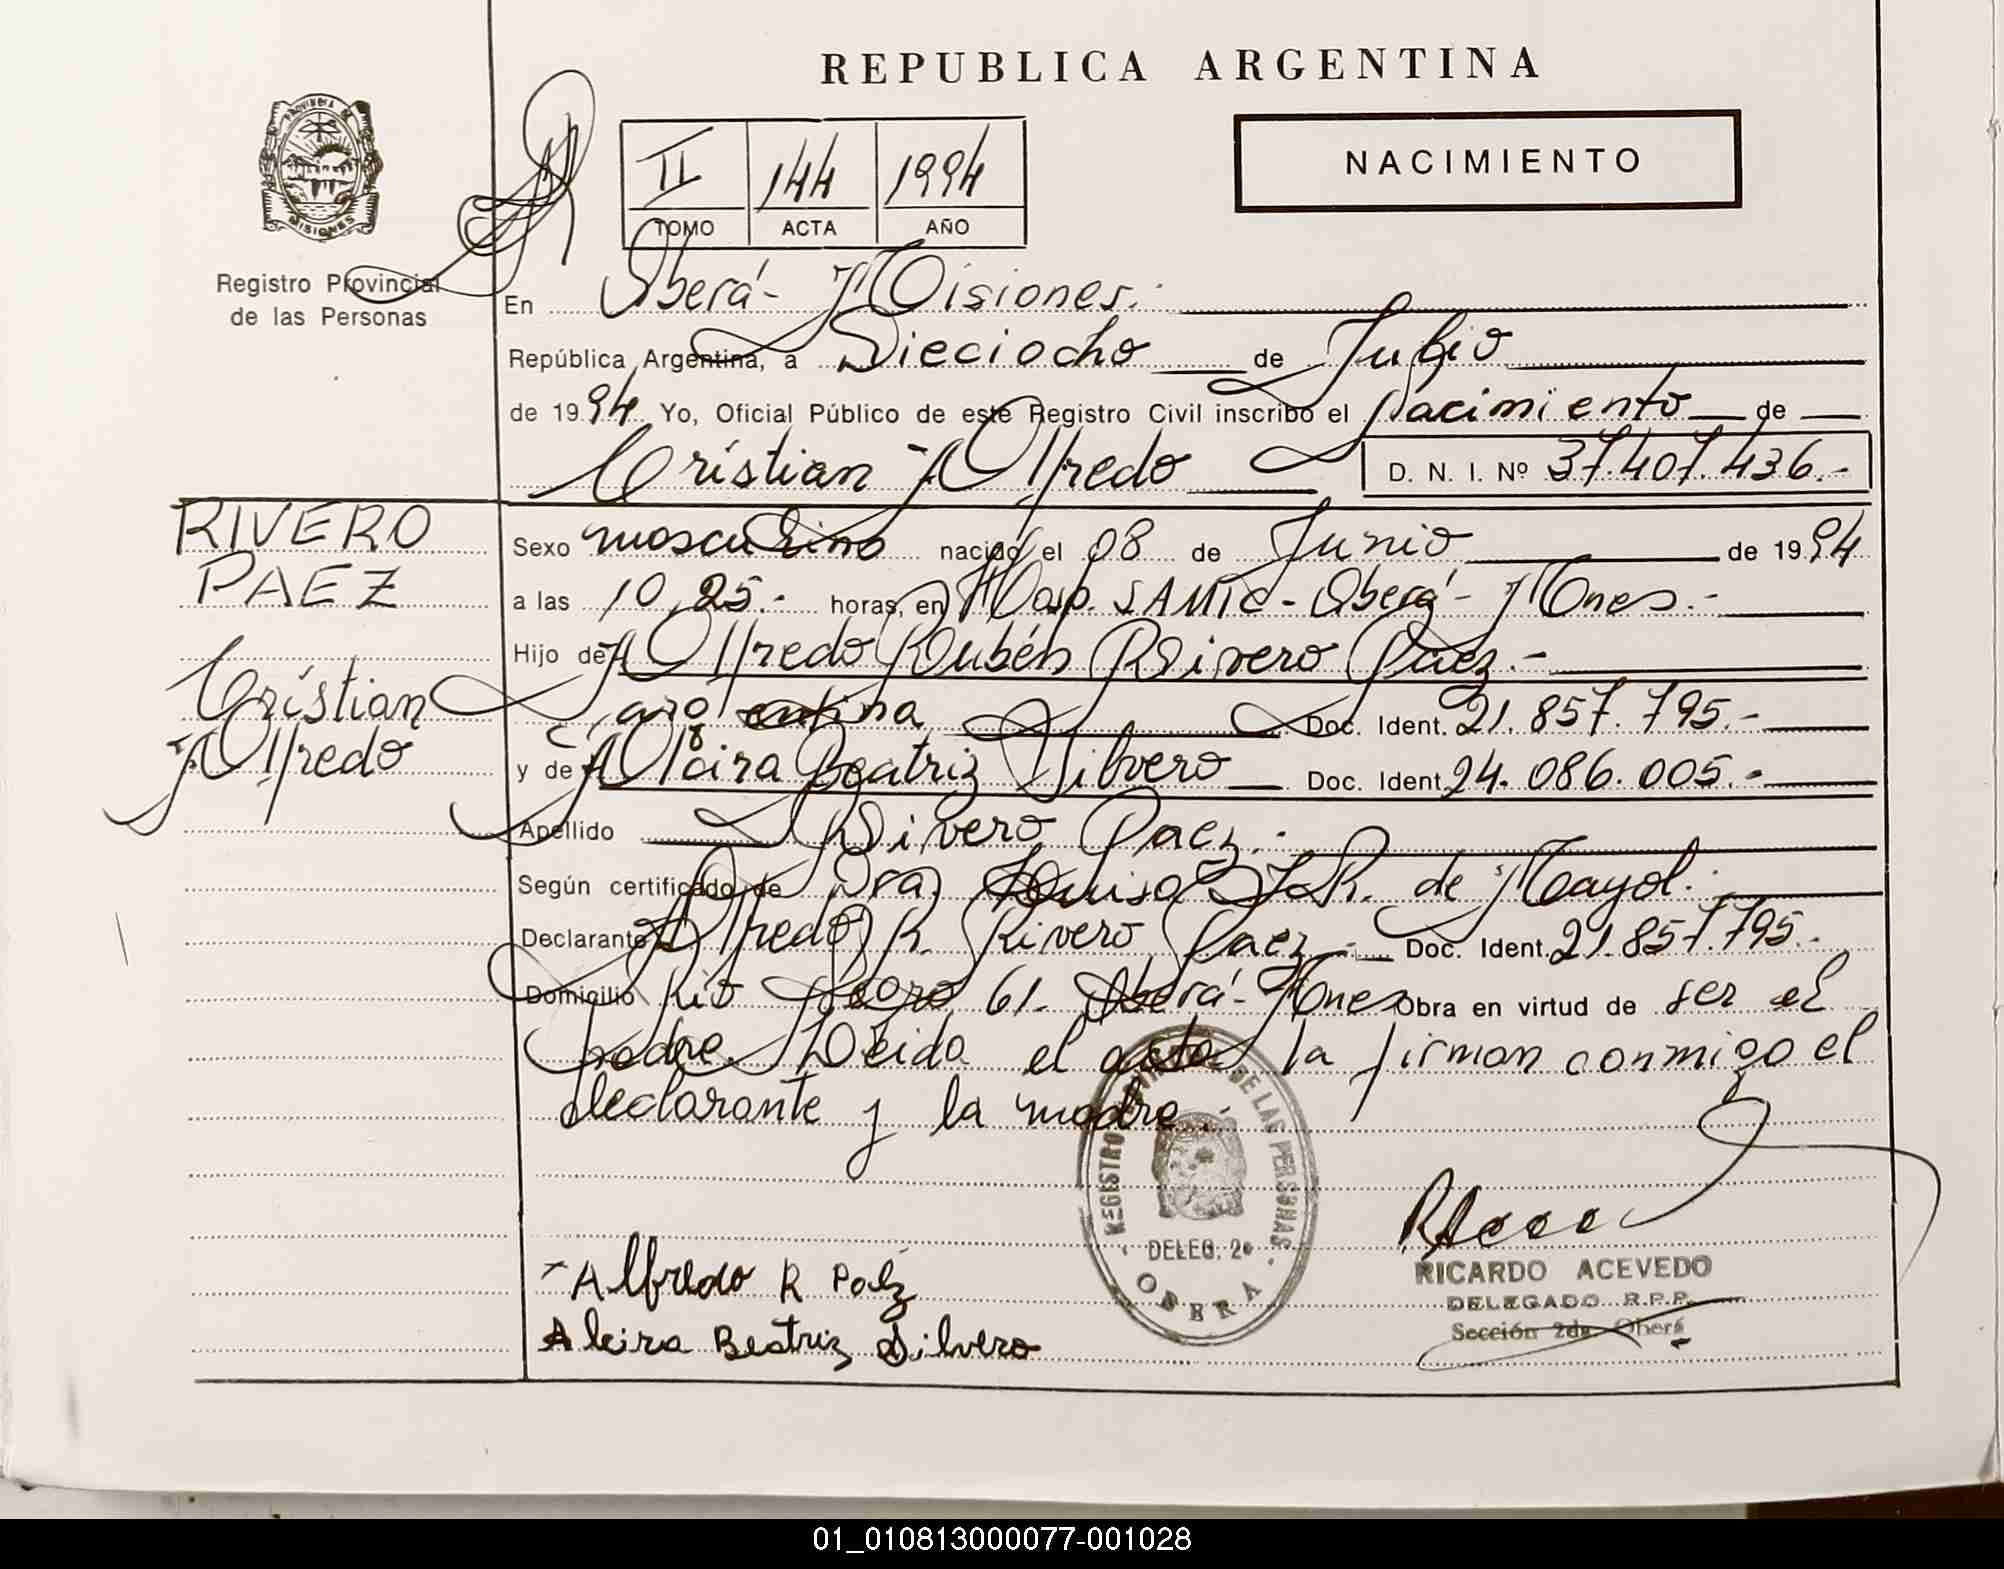 REPUBLICA ARGENTINA
PROVINCIA DE
MISIONES
Registro Provincial
de las Personas
II 144 1994
TOMO ACTA AÑO
NACIMIENTO
En Oberá - Misiones.-
República Argentina, a Dieciocho de Julio
de 1994 Yo, Oficial Público de este Registro Civil inscribo el Nacimiento de
Cristian Alfredo D. N. I. Nº 37.407.436.-
RIVERO
PAEZ
Cristian
Alfredo
Sexo masculino nacido el 08 de Junio de 1994
a las 10,25.- horas, en Hosp. SAMIC - Oberá - Mones.-
Hijo de Alfredo Rubén Rivero Paez.-
argentina Doc. Ident. 21.857.795.-
y de Alcira Beatriz Silvero Doc. Ident. 24.086.005.-
Apellido Rivero Paez.-
Según certificado de Dra. Luisa de Mayol.-
Declarante Alfredo R. Rivero Paez.- Doc. Ident. 21.857.795.-
Domicilio Río Negro 61- Oberá - Mones Obra en virtud de ser el
padre. Leída el acta la firman conmigo el
declarante y la madre.-
REGISTRO PROVINCIAL DE LAS PERSONAS
DELEG. 2ª
OBERA
RICARDO ACEVEDO
DELEGADO R.P.P.
Sección 2da. Oberá
Alfredo R Paez
Alcira Beatriz Silvero
01_010813000077-001028